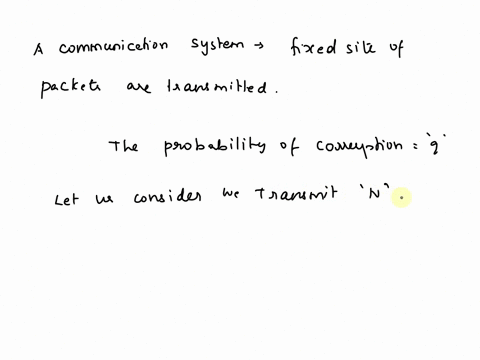 A communication system → fixed size of
packets are transmitted.
The probability of corruption = 'q'
Let us consider we transmit 'N'